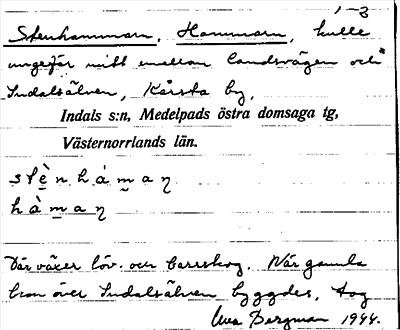 1-3
Stenhammarn, Hammarn, kulle
ungefär mitt emellan landsvägen och
Indalsälven, Kårsta by,
Indals s:n, Medelpads östra domsaga tg,
Västernorrlands län.
Där växer löv- och barrskog. När gamla
bron över Indalsälven byggdes, tog
Bergman 1944.